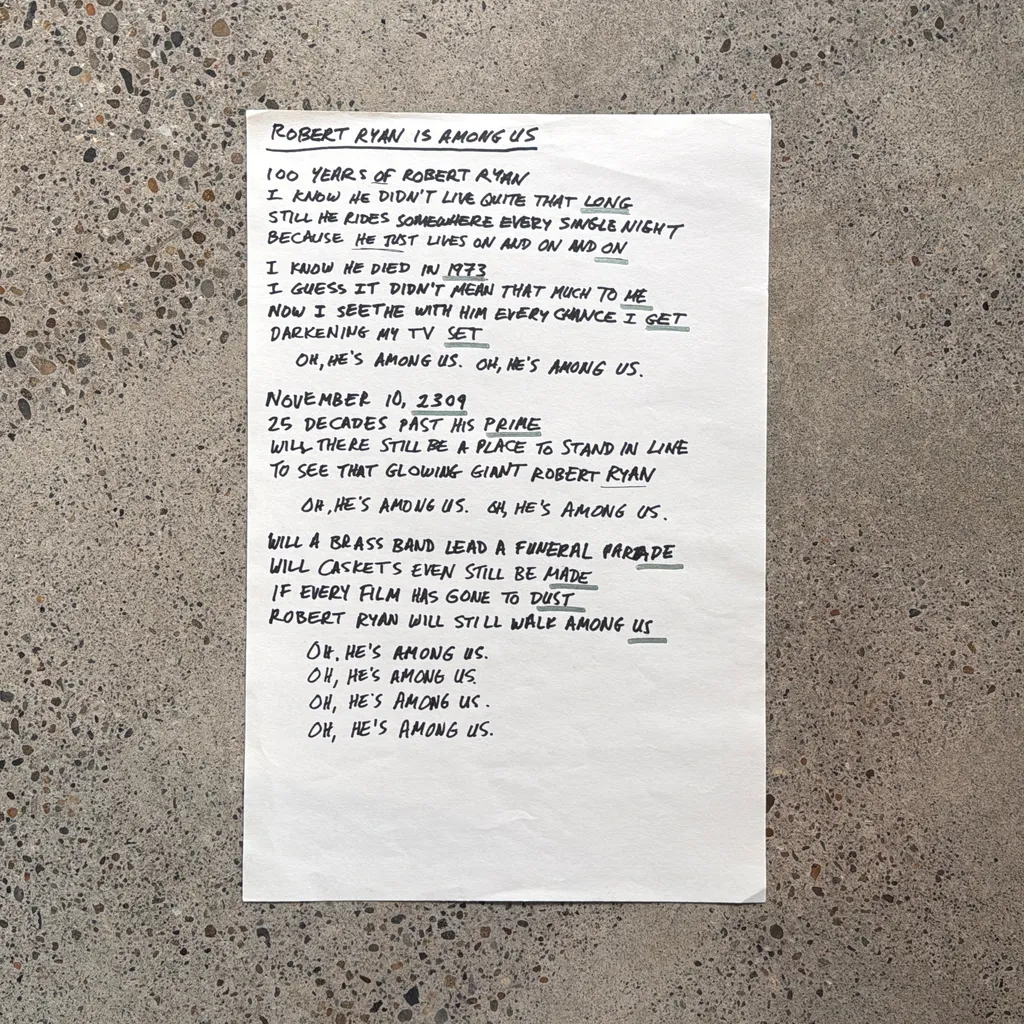 ROBERT RYAN IS AMONG US
100 YEARS OF ROBERT RYAN
I KNOW HE DIDN'T LIVE QUITE THAT LONG
STILL HE RIDES SOMEWHERE EVERY SINGLE NIGHT
BECAUSE HE JUST LIVES ON AND ON AND ON
I KNOW HE DIED IN 1973
I GUESS IT DIDN'T MEAN THAT MUCH TO ME
NOW I SEETHE WITH HIM EVERY CHANCE I GET
DARKENING MY TV SET
OH, HE'S AMONG US. OH, HE'S AMONG US.
NOVEMBER 10, 2309
25 DECADES PAST HIS PRIME
WILL THERE STILL BE A PLACE TO STAND IN LINE
TO SEE THAT GLOWING GIANT ROBERT RYAN
OH, HE'S AMONG US. OH, HE'S AMONG US.
WILL A BRASS BAND LEAD A FUNERAL PARADE
WILL CASKETS EVEN STILL BE MADE
IF EVERY FILM HAS GONE TO DUST
ROBERT RYAN WILL STILL WALK AMONG US
OH, HE'S AMONG US.
OH, HE'S AMONG US.
OH, HE'S AMONG US.
OH, HE'S AMONG US.